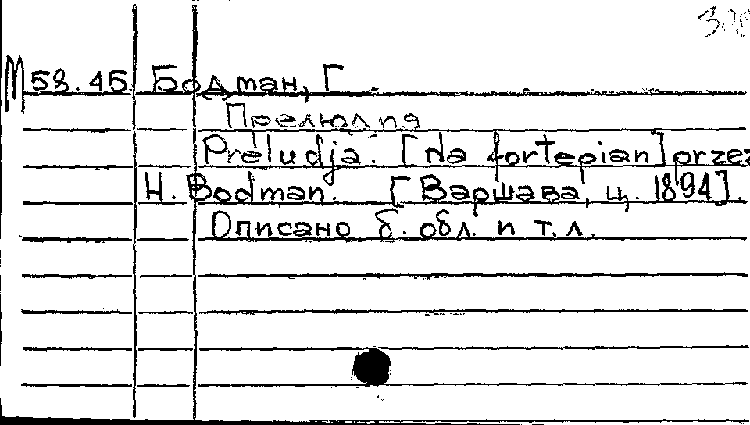 М 58.45 Бодман, Г.
Прелюдия
Preludja. [na fortepian] przez
H. Bodman. [Варшава, ц. 1894].
Описано б. обл. и т.л.